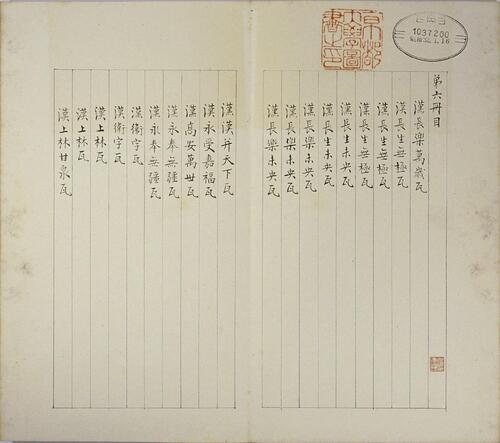 京都
大學圖
書之印
1037200
昭和32.1.16
第六冊目
漢長樂萬歲瓦
漢長生無極瓦
漢長生無極瓦
漢長生無極瓦
漢長生未央瓦
漢長生未央瓦
漢長樂未央瓦
漢長樂未央瓦
漢長樂未央瓦
漢漢并天下瓦
漢永受嘉福瓦
漢高安萬世瓦
漢永奉無疆瓦
漢永奉無疆瓦
漢衛字瓦
漢衛字瓦
漢上林瓦
漢上林瓦
漢上林甘泉瓦